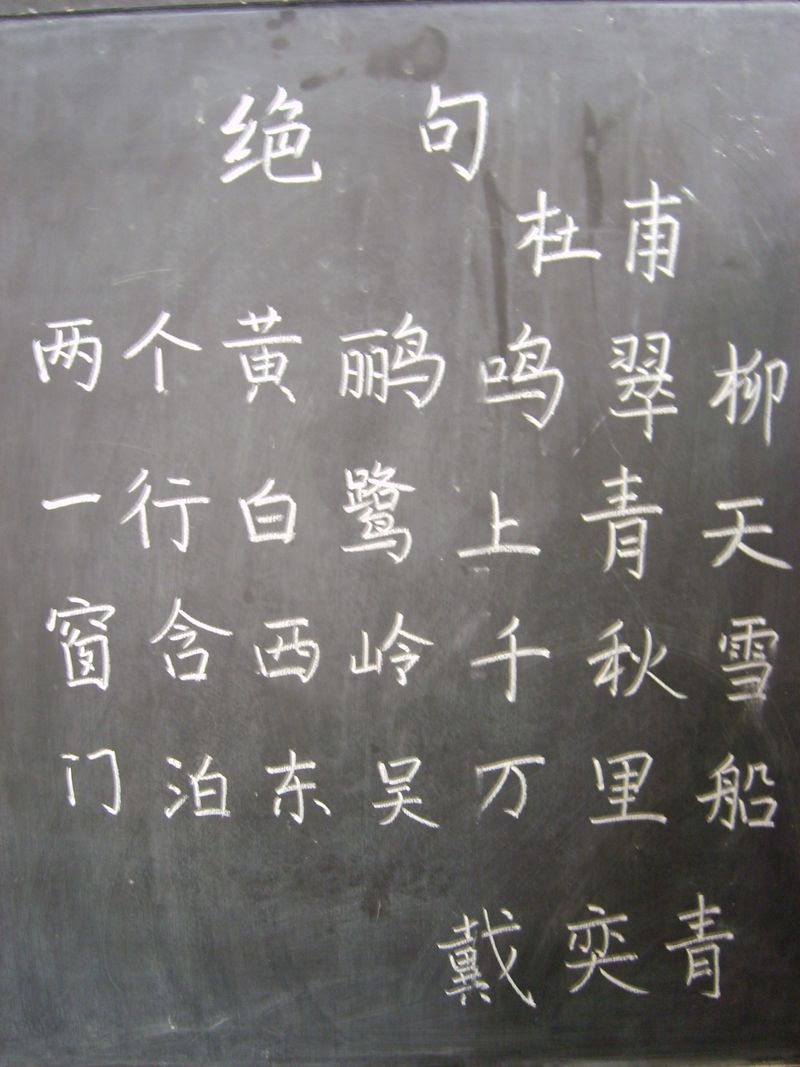 绝句
杜甫
两个黄鹂鸣翠柳
一行白鹭上青天
窗含西岭千秋雪
门泊东吴万里船
戴奕青